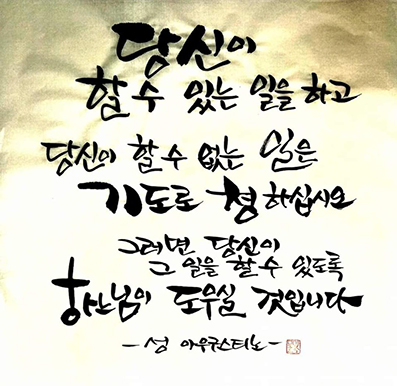 당신이
할 수 있는 일을 하고
당신이 할 수 없는 일은
기도로 청하십시오
그러면 당신이
그 일을 할 수 있도록
하느님이 도우실 것입니다
- 성 아우구스티노 -